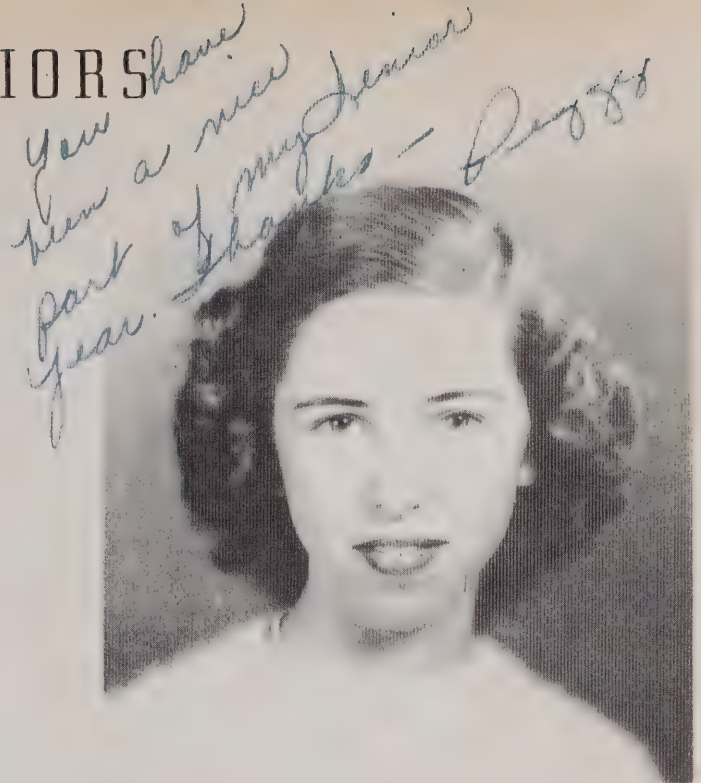 IORS
You have
been a nice
part of my Senior
year. Thanks — Peggy